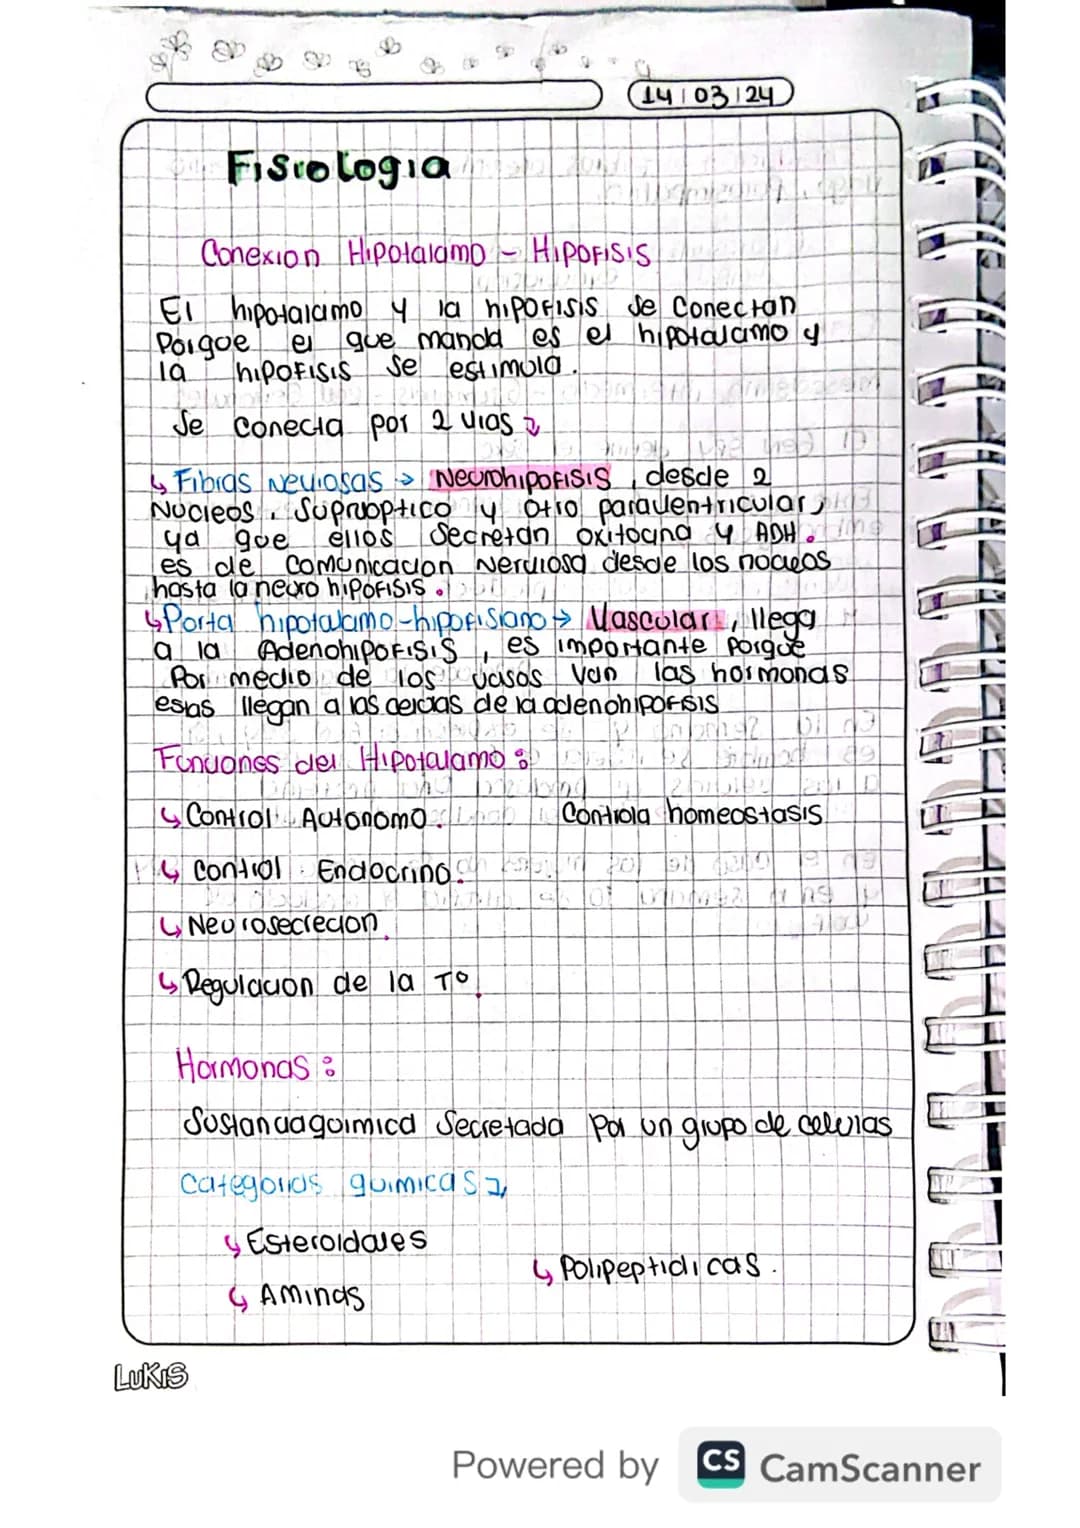 14 | 03 | 24
Fisiologia
Conexion Hipotalamo - Hipofisis
El hipotalamo y la hipofisis se conectan
Porque el que manda es el hipotalamo y
la hipofisis se estimula.
Se conecta por 2 vias ↴
↳ Fibras neviosas → Neurohipofisis, desde 2
Nucleos, Supraoptico y otro paraventricular,
ya que ellos secretan oxitocina y ADH.
es de comunicacion nerviosa desde los nucleos
hasta la neuro hipofisis.
↳ Porta hipotalamo-hipofisiano → Vascular, llega
a la Adenohipofisis, es importante porque
Por medio de los vasos van las hormonas
estas llegan a las celdas de la adenohipofsis
Funciones del Hipotalamo:
↳ Control Autonomo. Controla homeostasis
↳ Control Endocrino.
↳ Neurosecrecion.
↳ Regulacion de la T°.
Hormonas:
Sustancia quimica Secretada por un grupo de celulas
Categorias quimicas ↴
↳ Esteroidales
↳ Polipeptidicas.
↳ Aminas
LUKIS
Powered by CS CamScanner